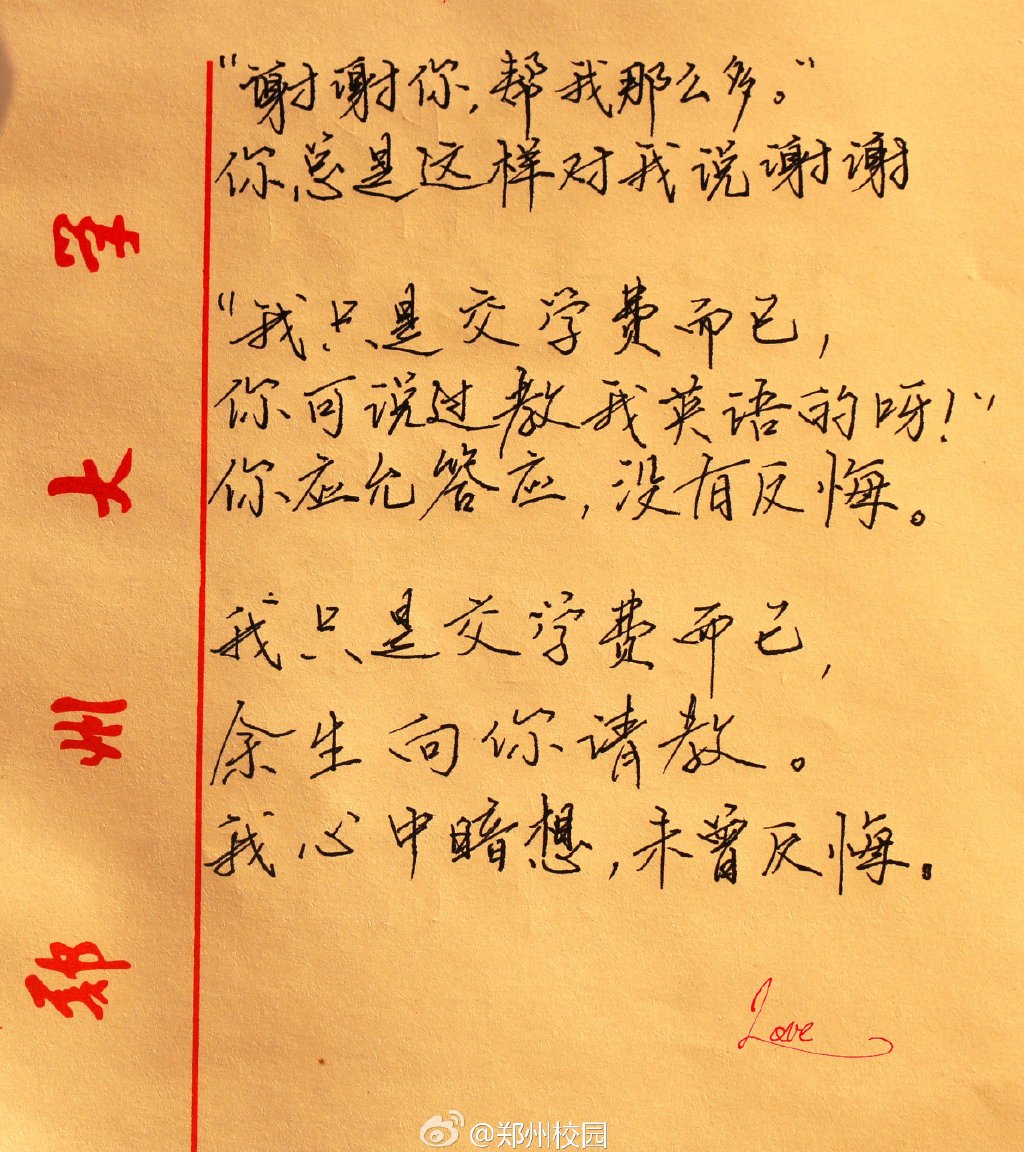 "谢谢你，帮我那么多。"
你总是这样对我说谢谢
"我只是交学费而已，
你可说过教我英语的呀！"
你应允答应，没有反悔。
我只是交学费而已，
余生向你请教。
我心中暗想，未曾反悔。
Love
郑州大学
@郑州校园